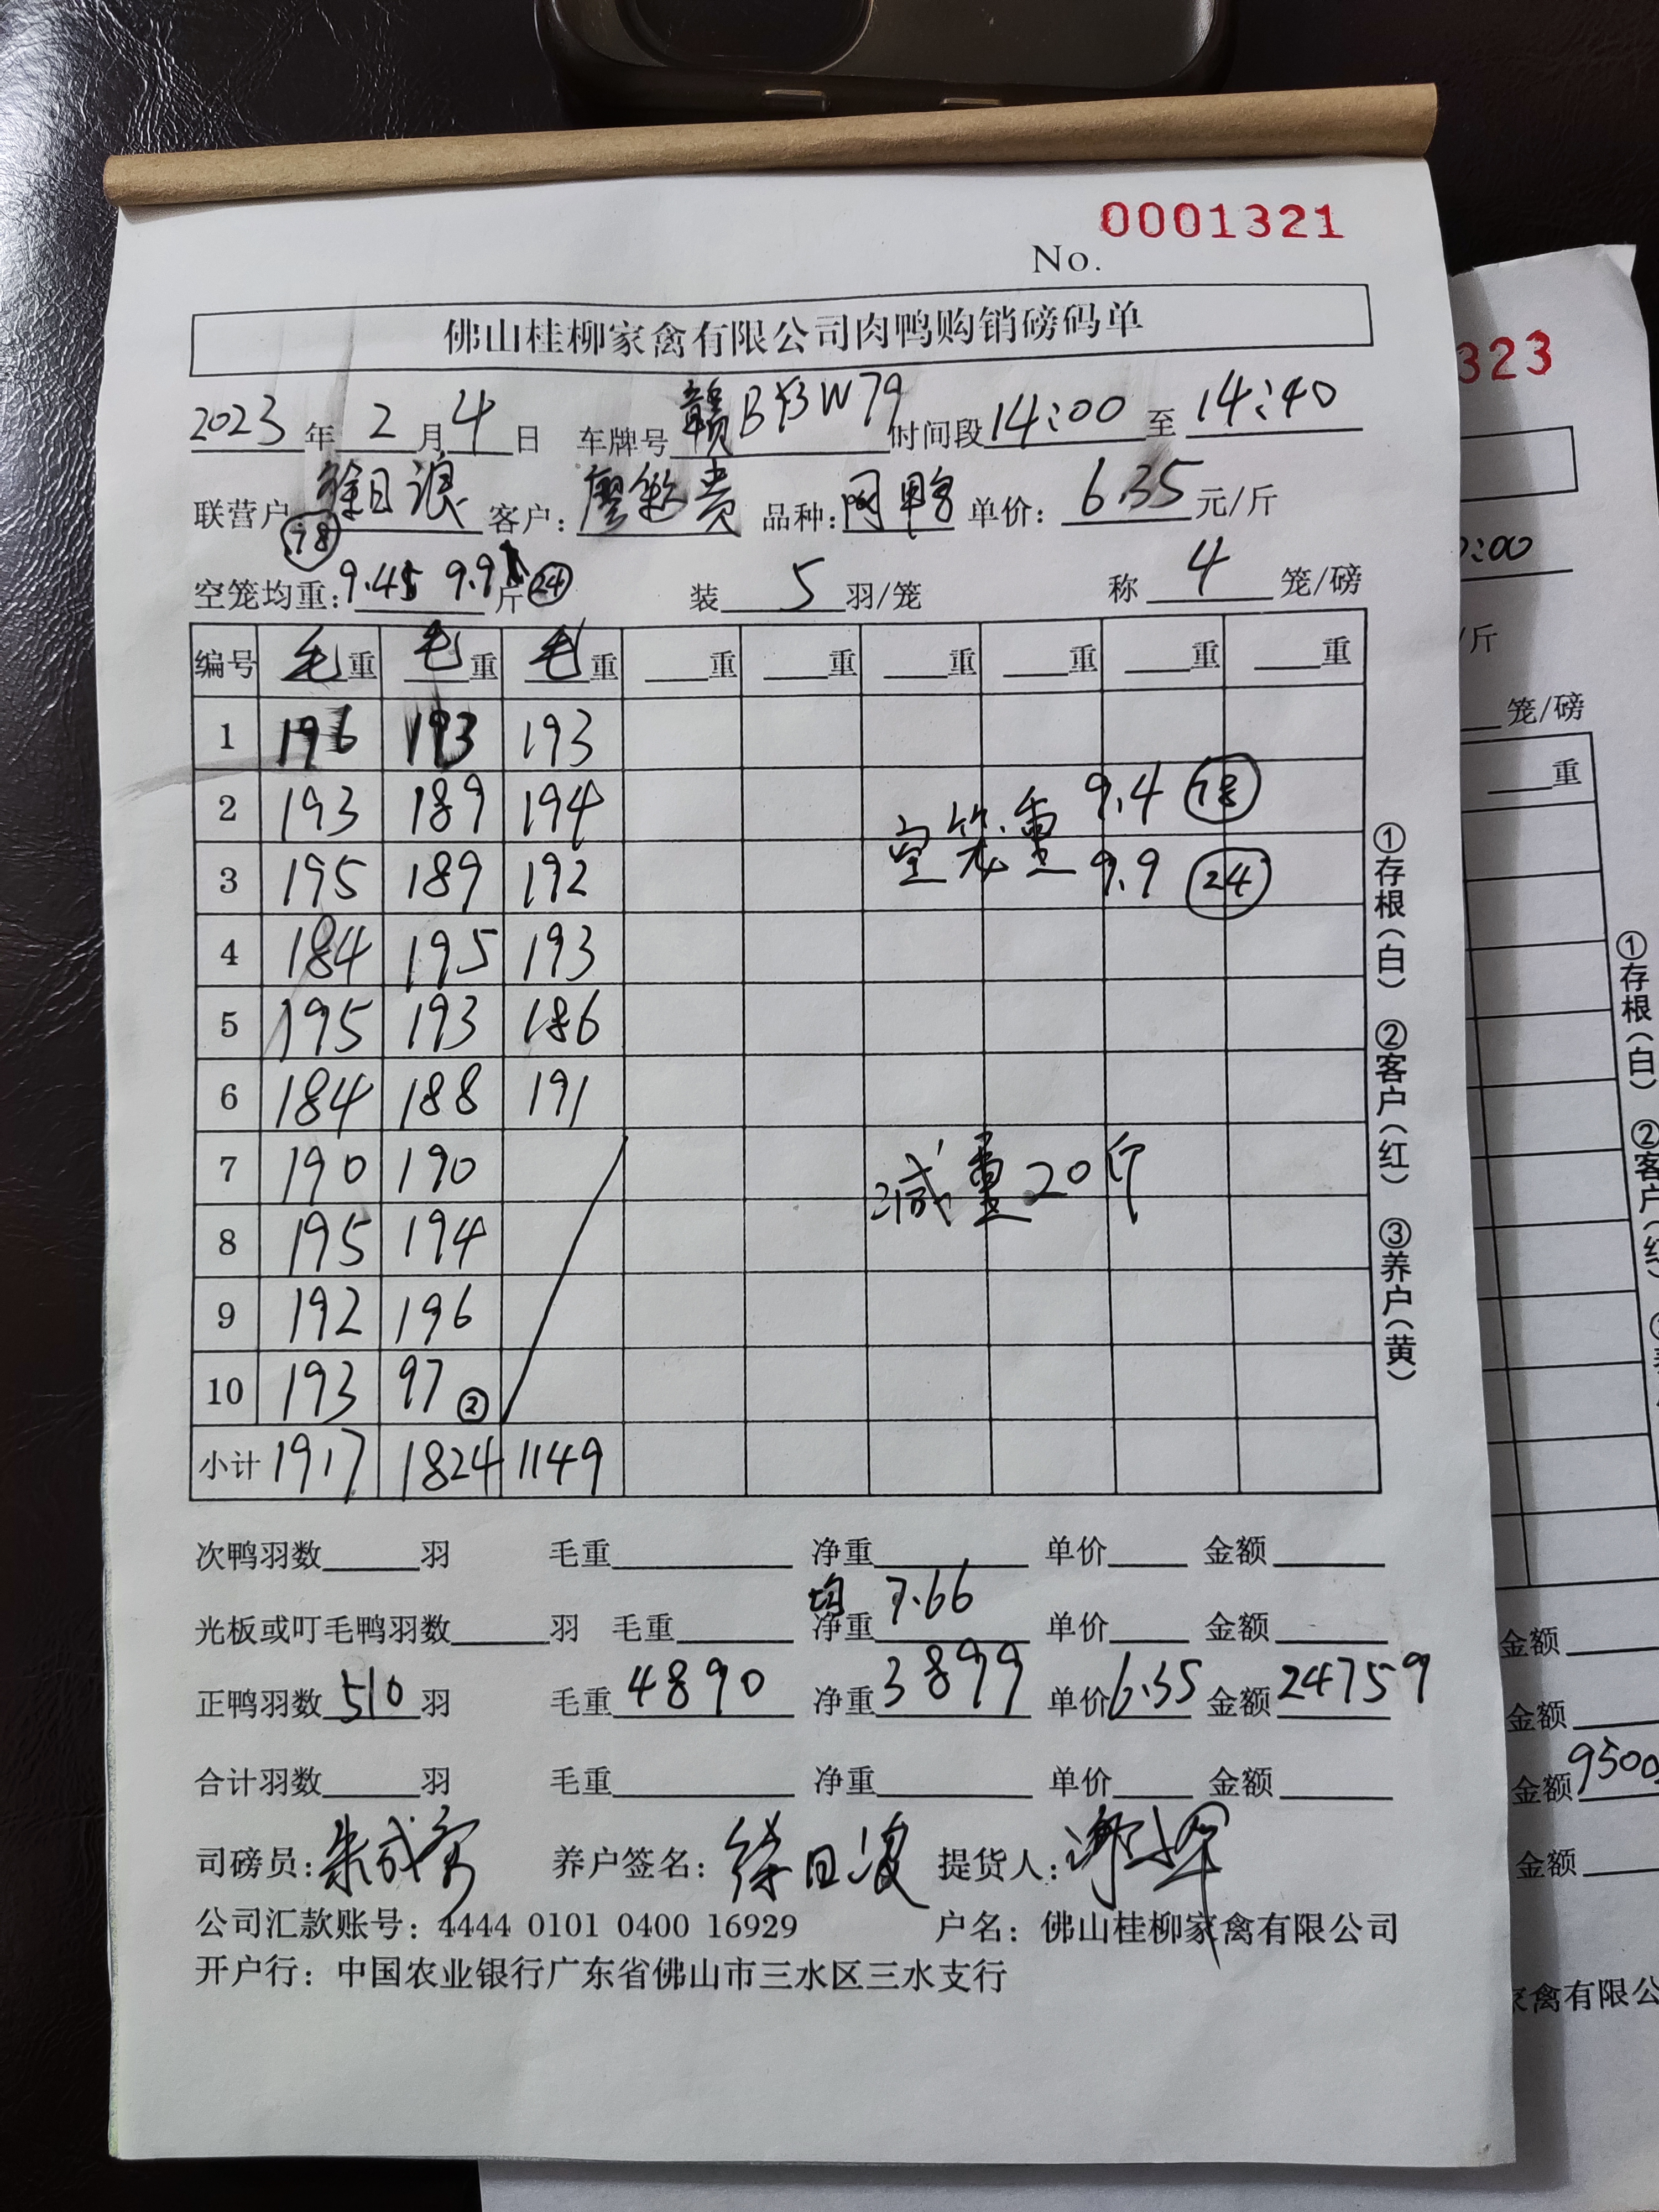 0001321
No.
佛山桂柳家禽有限公司肉鸭购销磅码单
2023年2月4日 车牌号赣B93W79时间段14:00至14:40
联营户徐日浪 客户：廖 贵 品种： 单价：6.35元/斤
78
空笼均重：9.45 9.9斤 24 装5羽/笼 称4笼/磅
编号 毛重 毛重 毛重 重 重 重 重 重 重
1 196 193 193
2 193 189 194 空笼重 9.4 78
3 195 189 192 9.9 24
4 184 195 193
5 195 193 186
6 184 188 191
7 190 190 减重20斤
8 195 194
9 192 196
10 193 97 ②
小计 1917 1824 1149
①存根（白） ②客户（红） ③养户（黄）
次鸭羽数 羽 毛重 净重 单价 金额
均 7.66
光板或叮毛鸭羽数 羽 毛重 净重 单价 金额
正鸭羽数510羽 毛重4890 净重3899 单价6.35 金额24759
合计羽数 羽 毛重 净重 单价 金额
司磅员：朱成 养户签名：徐日浪 提货人：
公司汇款账号：4444 0101 0400 16929 户名：佛山桂柳家禽有限公司
开户行：中国农业银行广东省佛山市三水区三水支行
323
0:00
/斤
笼/磅
重
①存根（白） ②客户（红）
金额
金额
金额9500
金额
家禽有限公